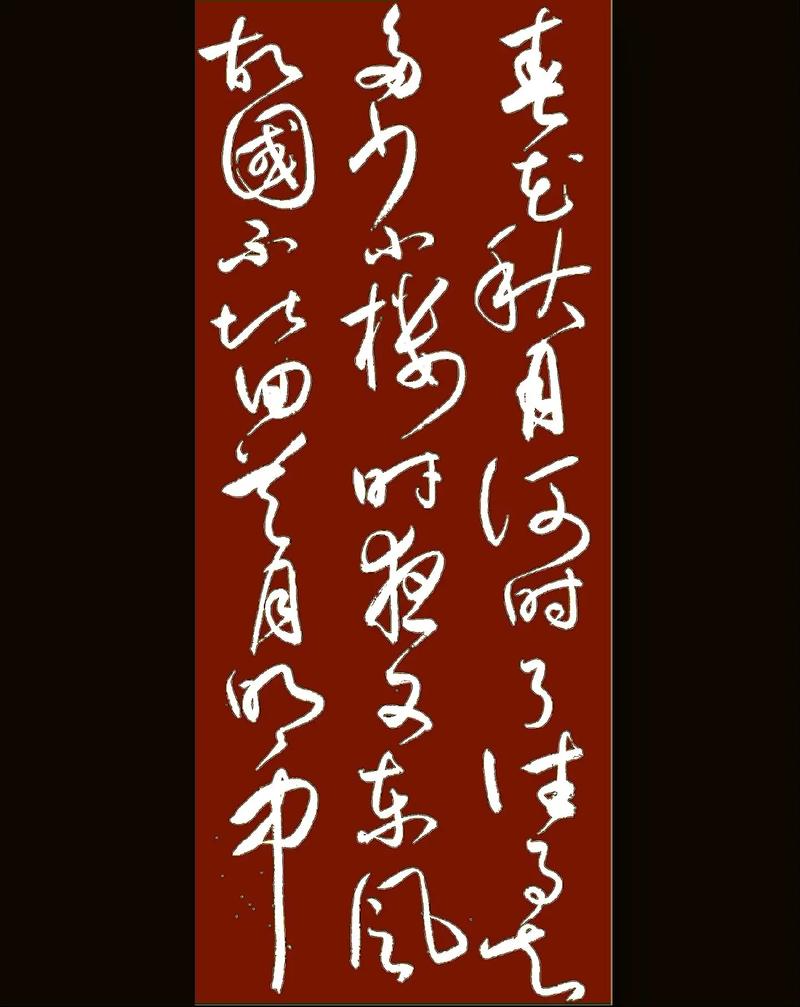 春花秋月何時了往事知
多少小樓昨夜又東風
故國不堪回首月明中